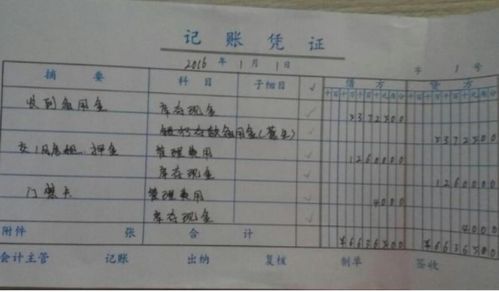 记账凭证
2016年1月1日 字1号
摘要 科目 子细目 √ 借方 贷方
收到备用金 库存现金 √ 5372500
备用金(董事) 5372500
交1月房租、押金 管理费用 √ 1260000
库存现金 √ 1260000
门禁卡 管理费用 √ 4000
库存现金 √ 4000
附件 张 合计 ¥6636500 ¥6636500
会计主管 记账 出纳 复核 制单 签收